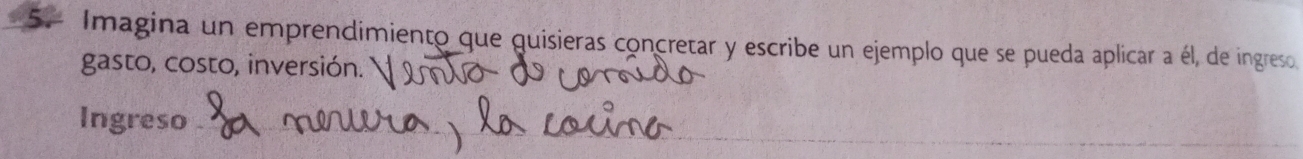 5. Imagina un emprendimiento que quisieras concretar y escribe un ejemplo que se pueda aplicar a él, de ingreso,
gasto, costo, inversión. Venta de comida
Ingreso La nevera, la cocina